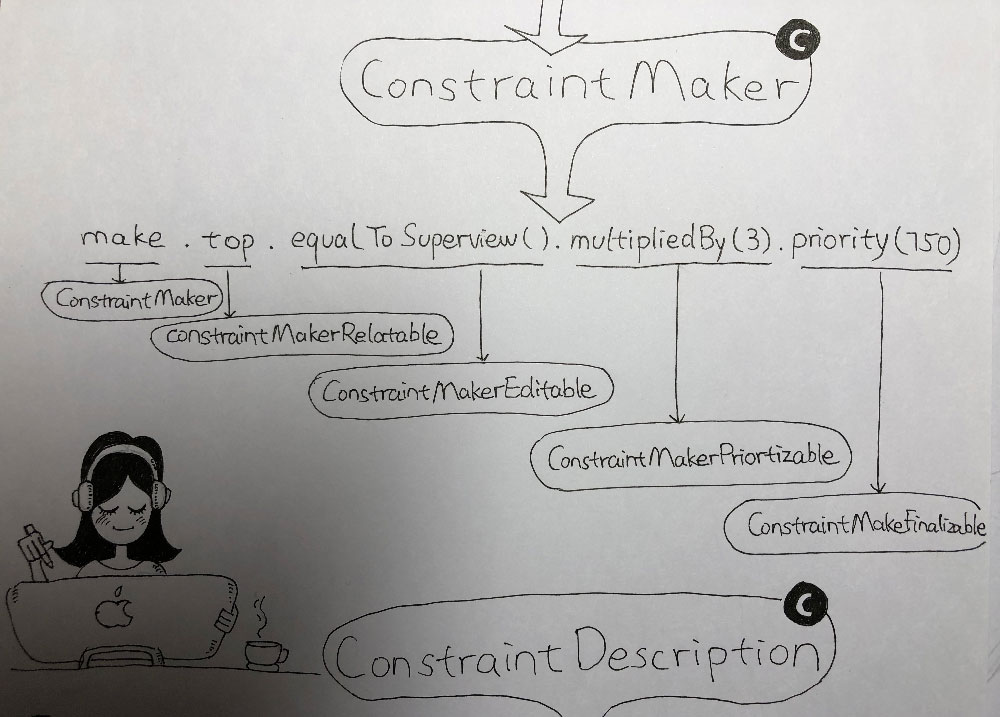 C
Constraint Maker
make . top . equalToSuperview() . multipliedBy(3) . priority(750)
ConstraintMaker
constraintMakerRelatable
ConstraintMakerEditable
ConstraintMakerPriortizable
ConstraintMakeFinalizable
C
Constraint Description